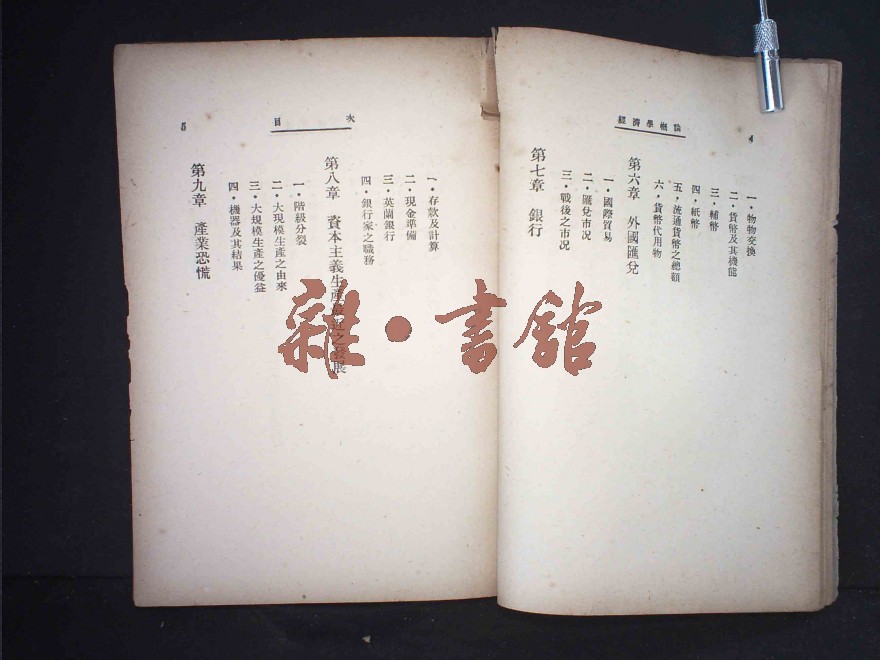 經濟學概論
4
一·物物交換
二·貨幣及其機能
三·輔幣
四·紙幣
五·流通貨幣之總額
六·貨幣代用物
第六章 外國匯兌
一·國際貿易
二·匯兌市况
三·戰後之市况
第七章 銀行
目次
5
一·存款及計算
二·現金準備
三·英蘭銀行
四·銀行家之職務
第八章 資本主義生產最近之發展
一·階級分裂
二·大現模生產之由來
三·大規模生產之優益
四·機器及其結果
第九章 產業恐慌
雜·書館